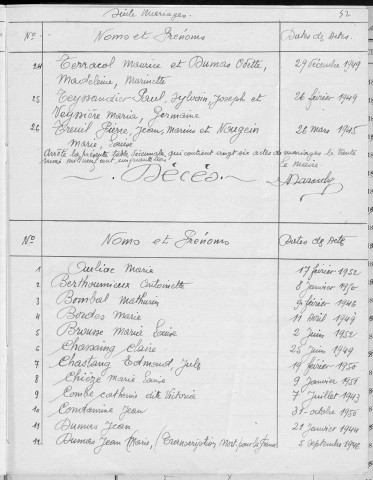 Suite mariages. 52
Nos Noms et Prénoms Dates des Actes.
24 Terracol Maurice et Dumas Odette, 29 Décembre 1949
Madeleine, Marinette
25 Teyssandier Paul, Sylvain, Joseph et 26 février 1949
Veyssière Maria, Germaine
26 Treuil Pierre, Jean, Marius et Nougein 26 mars 1945
Marie, Louise
Arrêté la présente table décennale, qui contient vingt six actes de mariages le trente
mil neuf cent cinquante Le Maire
Décès
Nos Noms et Prénoms Dates des Actes
1 Marie 17 février 1952
2 Berthoumieux Antoinette 8 Janvier 1950
3 Bombal Mathurin 9 février 1946
4 Bordes Marie 11 Avril 1949
5 Brousse Marie Louise 2 Juin 1952
6 Chassaing Claire 25 Juin 1949
7 Chastang Edmond, Jules 19 février 1950
8 Marie Louise 9 Janvier 1951
9 Combe Catherine dite Victoria 7 Juillet 1943
10 Constamine Jean 31 octobre 1950
11 Dumas Jean 21 Janvier 1944
12 Dumas Jean Marie, (Transcription Mort pour la France) 5 septembre 1946